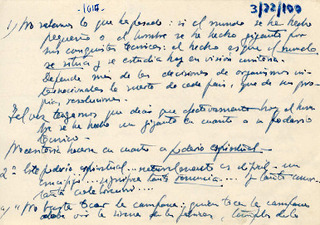 -1616-
3/72/100
1) No sabemos lo que ha pasado: si el mundo se ha hecho
pequeño o el hombre se ha hecho gigante por
sus conquistas técnicas: el hecho es que el mundo
se sitúa y se estudia hoy en visión unitaria.
Depende más de las decisiones de organismos in-
ternacionales la suerte de cada país, que de sus pro-
pias resoluciones.
Tal vez tengamos que decir que efectivamente hoy el hom-
bre se ha hecho un gigante en cuanto a su poderío
técnico.
hacerse en cuanto a poderío espiritual.
2º Este poderío espiritual... naturalmente es difícil - un
crucifijo... significa tanta renuncia... y tanta
tanta
a) "No basta tocar la campana; quien toca la campana
debe